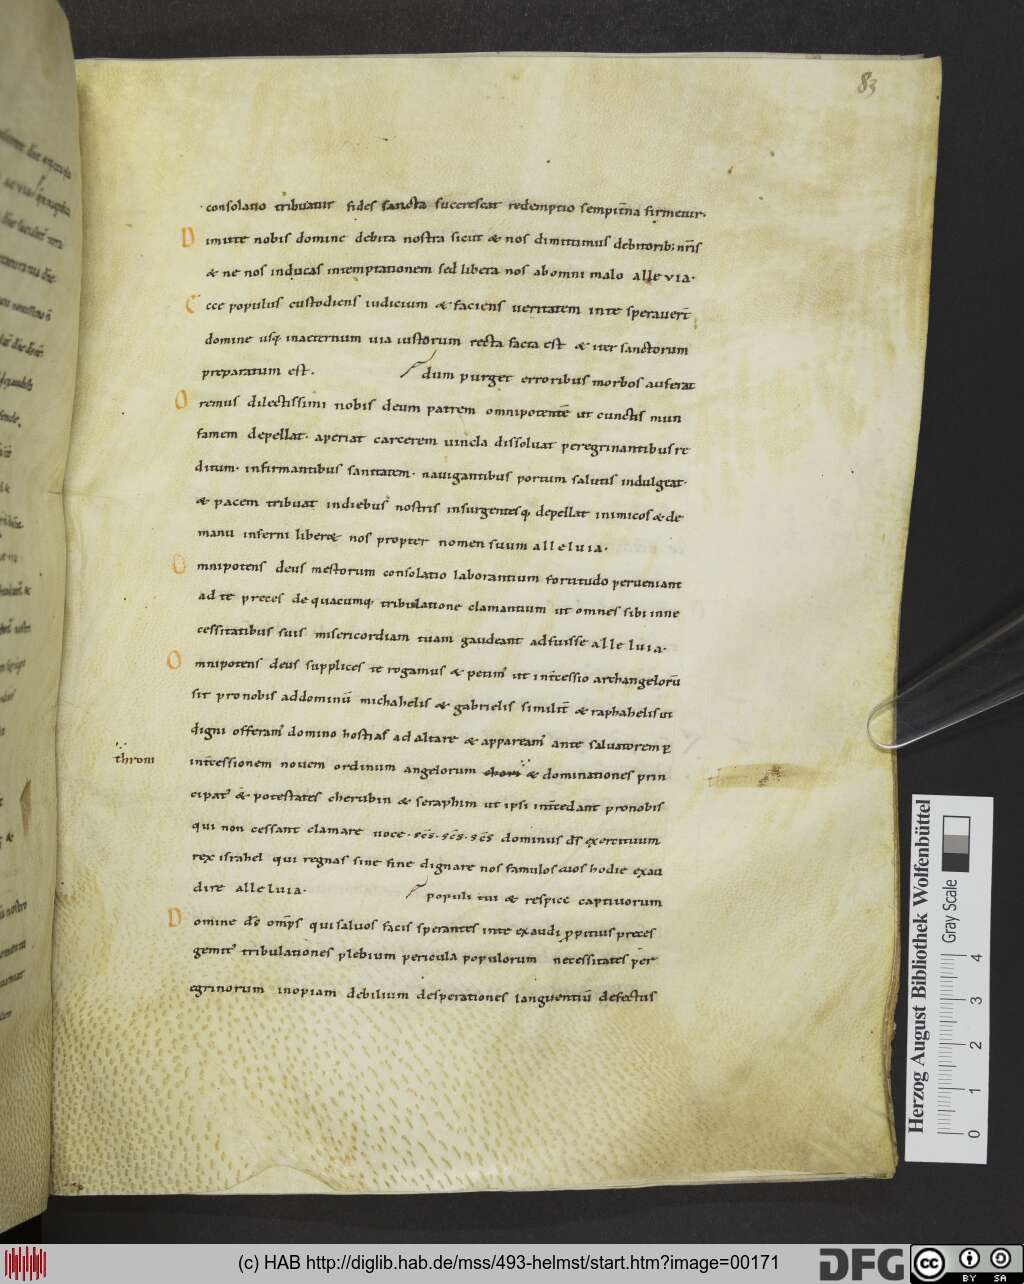 83
consolatio tribuatur fides sancta succrescat redemptio sempit̄na firmetur.
Dimitte nobis domine debita nostra sicut & nos dimittimus debitorib; nr̄is
& ne nos inducas intemptationem sed libera nos ab omni malo alleuia.
Ecce populus custodiens iudicium & faciens ueritatem in te sperauer̄t
domine usq; inaeternum uia iustorum recta facta est & iter sanctorum
preparatum est.
dum purget erroribus morbos auferat
Oremus dilectissimi nobis deum patrem omnipotentē ut cunctis mun
famem depellat. aperiat carcerem uincla dissoluat peregrinantibus re
ditum. infirmantibus sanitatem. nauigantibus portum salutis indulgeat.
& pacem tribuat indiebus nostris insurgentesq; depellat inimicos & de
manu inferni liber& nos propter nomen suum alleluia.
Omnipotens deus mestorum consolatio laborantium fortitudo perueniant
ad te preces de quacumq; tribulatione clamantium ut omnes sibi in ne
cessitatibus suis misericordiam tuam gaudeant adfuisse alleluia.
Omnipotens deus supplices te rogamus & petim' ut int̄cessio archangelorū
sit pro nobis ad dominū michahelis & gabrielis similit̄ & raphahelis ut
digni offeram' domino hostias ad altare & appaream' ante saluatorem p̱
throni
int̄cessionem nouem ordinum angelorum chori & dominationes prin
cipat' & potestates cherubin & seraphim ut ipsi int̄cedant pro nobis
qui non cessant clamare uoce. sc̄s. sc̄s. sc̄s dominus ds̄ exercituum
rex israhel qui regnas sine fine dignare nos famulos tuos hodie exau
dire alleluia.
populi tui & respice captiuorum
Domine ds̄ omp̄s qui saluos facis sperantes in te exaudi ꝓpitius preces
gemit' tribulationes plebium pericula populorum necessitates per
egrinorum inopiam debilium desperationes languentiū defectus
Herzog August Bibliothek Wolfenbüttel
Gray Scale
0 1 2 3 4
(c) HAB http://diglib.hab.de/mss/493-helmst/start.htm?image=00171
DFG
cc BY SA